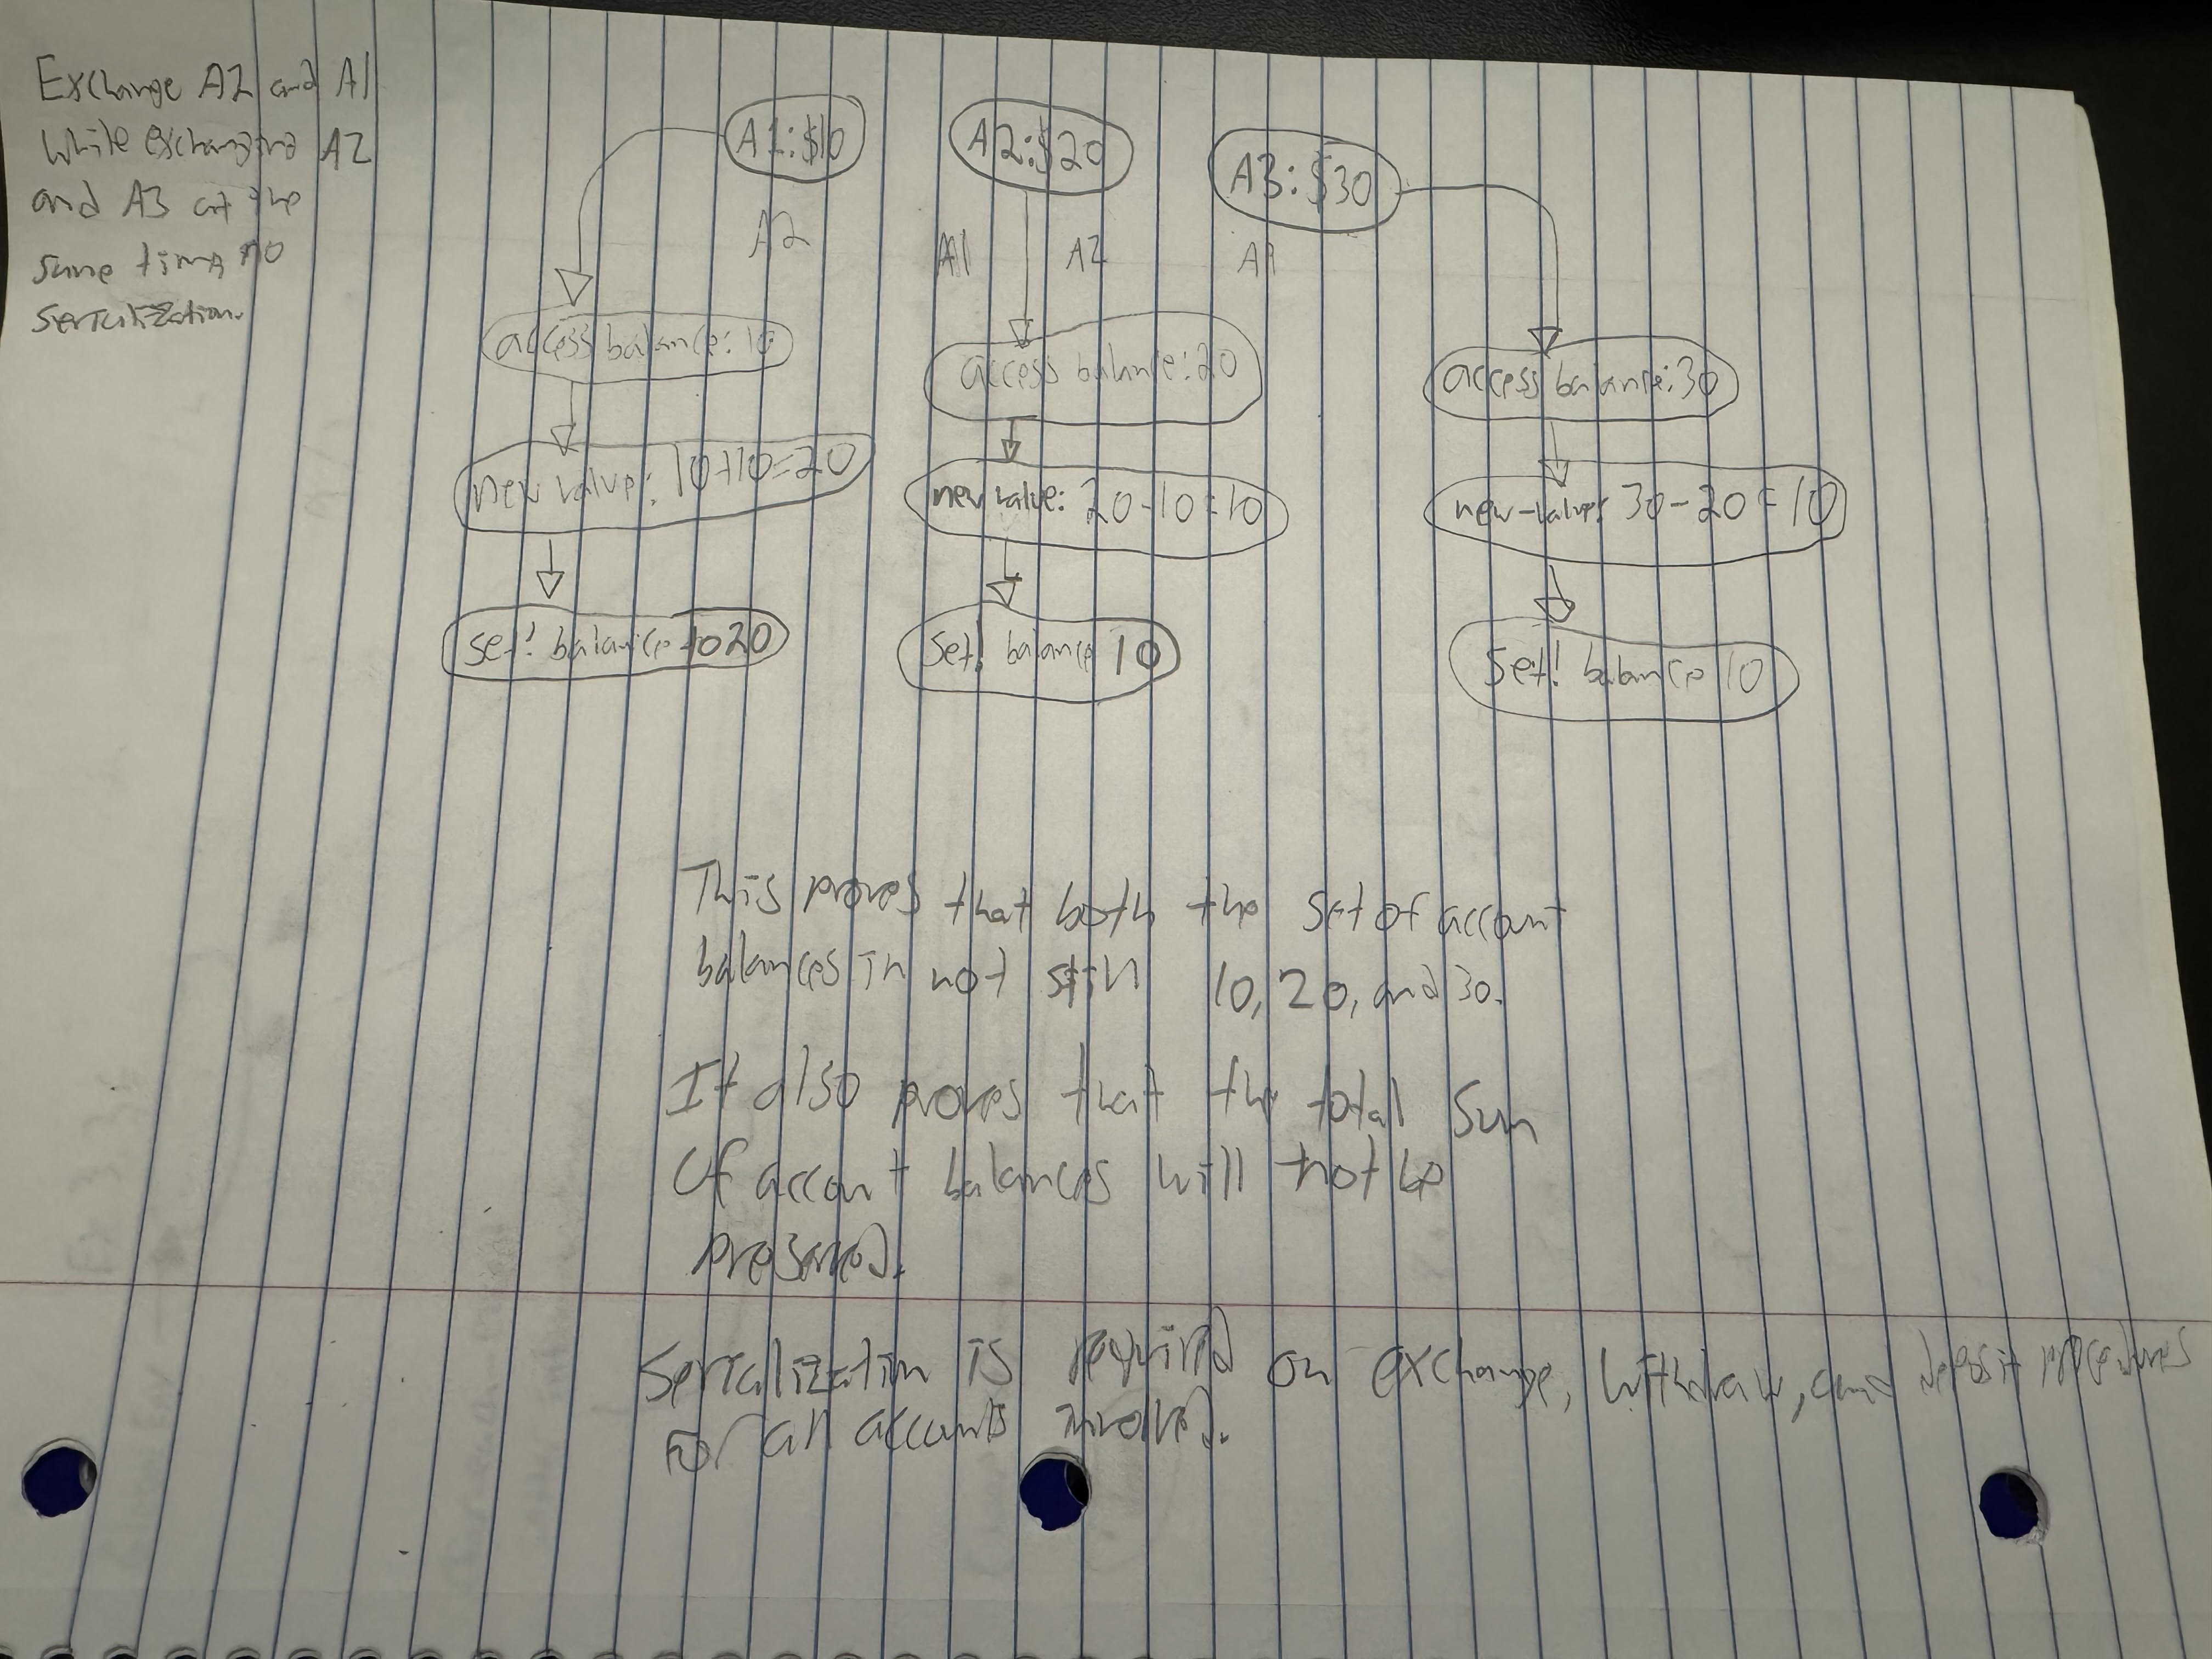 Exchange A2 and A1
while exchanging A2
and A3 at the
same time no
serialization.
A1:$10
A2:$20
A3:$30
A2
A1
A2
access balance: 10
access balance: 20
access balance: 30
new value: 10+10=20
new value: 20-10=10
new-value: 30-20=10
set! balance to 20
set! balance 10
set! balance 10
This proves that both the set of account
balances in not still 10, 20, and 30.
It also proves that the total sum
of account balances will not be
preserved.
Serialization is required on exchange, withdraw, and deposit procedures
for all accounts involved.